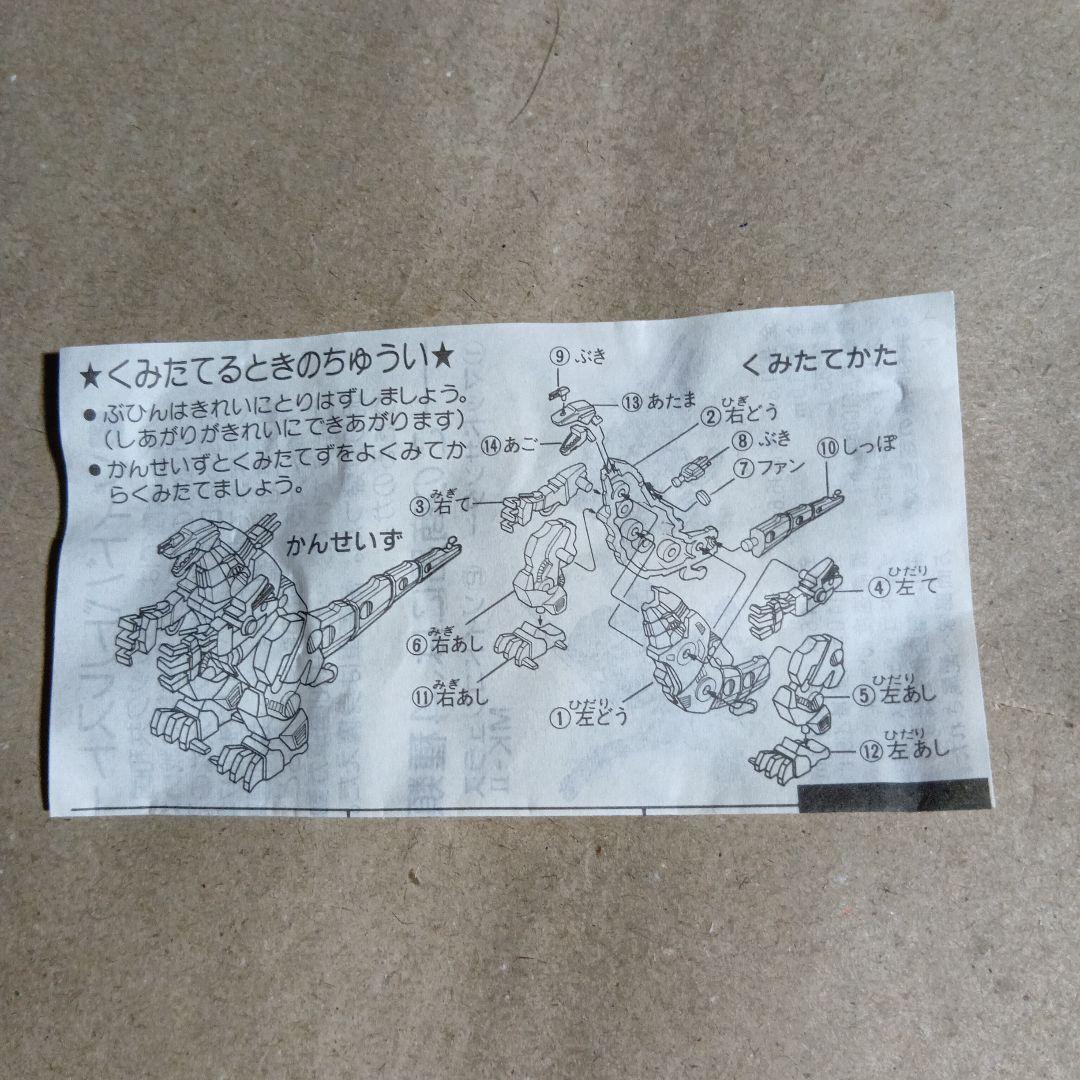 ★くみたてるときのちゅうい★
●ぶひんはきれいにとりはずしましょう。
(しあがりがきれいにできあがります)
●かんせいずとくみたてずをよくみてか
らくみたてましょう。
かんせいず
くみたてかた
⑨ぶき
⑬あたま
②右どう
ひぎ
⑧ぶき
⑭あご
⑦ファン
⑩しっぽ
③右て
みぎ
④左て
ひだり
⑥右あし
みぎ
⑪右あし
みぎ
①左どう
ひだり
⑤左あし
ひだり
⑫左あし
ひだり